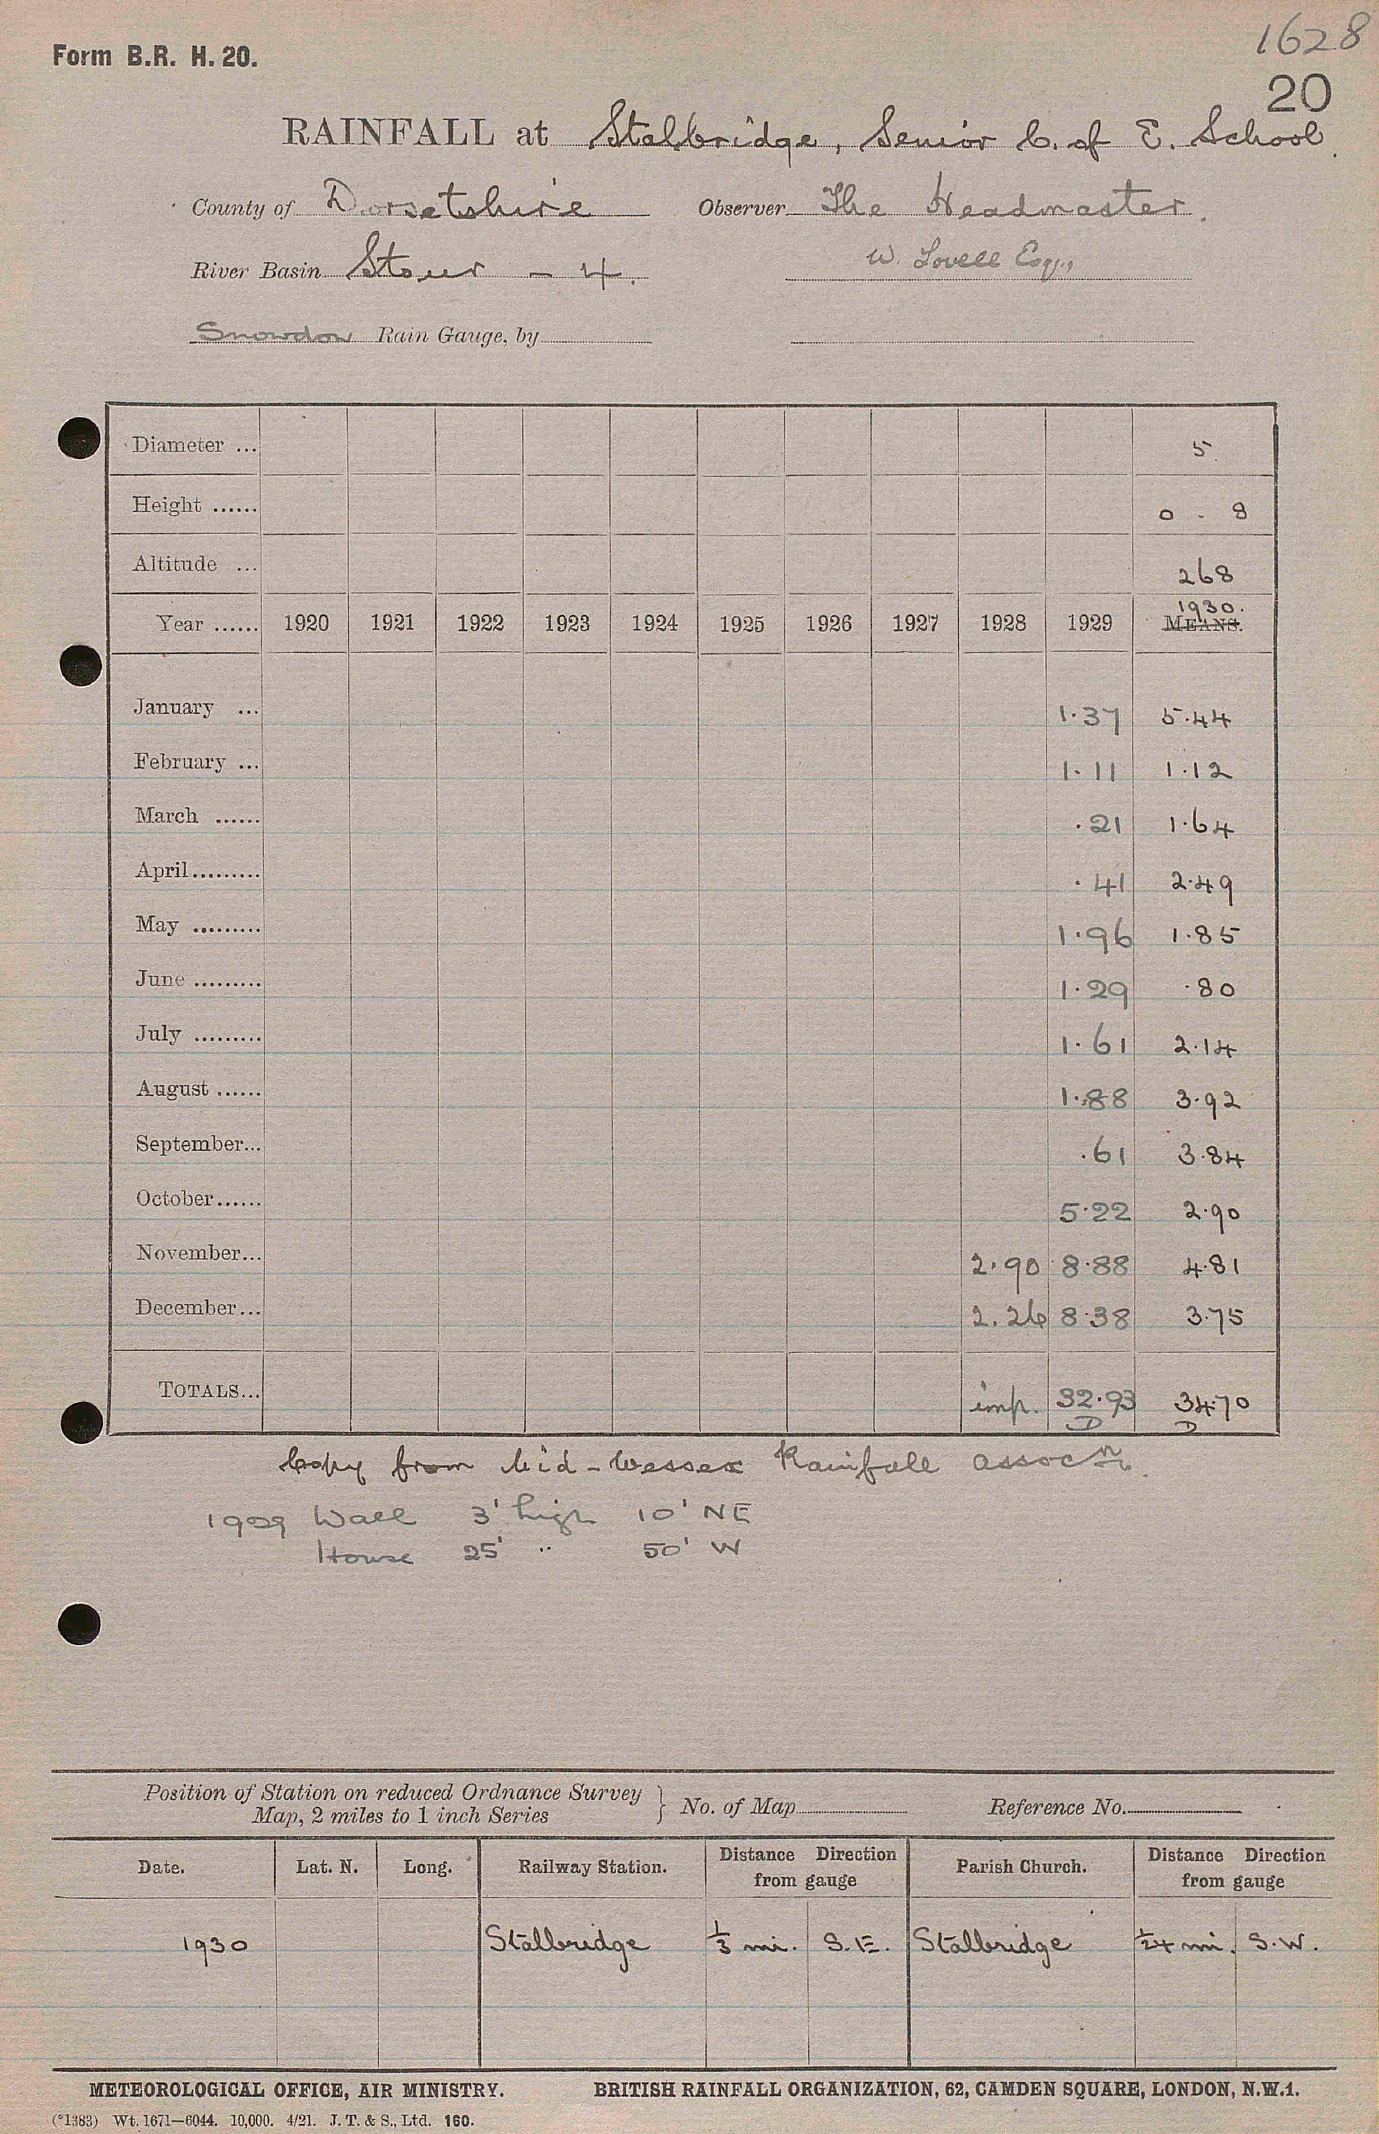 1628
Form B.R. H. 20.
20
RAINFALL at Stalbridge, Senior C. of E. School.
County of Dorsetshire Observer The Headmaster.
River Basin Stour - 4. W. Lovell Esq.,
Snowdon Rain Gauge, by
Diameter ... 5
Height ...... 0 - 8
Altitude ... 268
Year ...... 1920 1921 1922 1923 1924 1925 1926 1927 1928 1929 1930. MEANS.
January ... 1.37 5.44
February ... 1.11 1.12
March ...... .21 1.64
April ......... .41 2.49
May ......... 1.96 1.85
June ......... 1.29 .80
July ......... 1.61 2.14
August ...... 1.88 3.92
September... .61 3.84
October...... 5.22 2.90
November... 2.90 8.88 4.81
December... 2.26 8.38 3.75
TOTALS... imp. 32.93 34.70
D D
Copy from Mid-Wessex Rainfall Assocn.
1929 Wall 3' high 10' NE
House 25' " 50' W
Position of Station on reduced Ordnance Survey
Map, 2 miles to 1 inch Series } No. of Map Reference No.
Date. Lat. N. Long. Railway Station. Distance Direction from gauge Parish Church. Distance Direction from gauge
1930 Stalbridge 1/3 mi. S.E. Stalbridge 1/24 mi. S.W.
METEOROLOGICAL OFFICE, AIR MINISTRY. BRITISH RAINFALL ORGANIZATION, 62, CAMDEN SQUARE, LONDON, N.W.1.
(*1383) Wt. 1671—6044. 10,000. 4/21. J. T. & S., Ltd. 160.